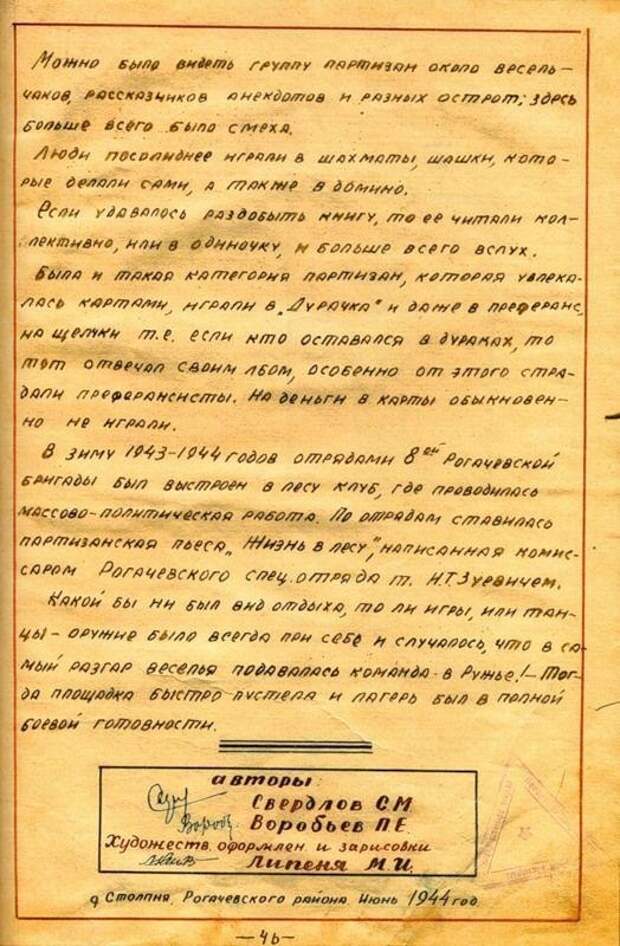 Можно было видеть группу партизан около весель-
чаков, рассказчиков анекдотов и разных острот; здесь
больше всего было смеха.
Люди посолиднее играли в шахматы, шашки, кото-
рые делали сами, а также в домино.
Если удавалось раздобыть книгу, то ее читали кол-
лективно, или в одиночку, и больше всего вслух.
Была и такая категория партизан, которая увлека-
лась картами, играли в „Дурачка" и даже в преферанс,
на щелчки т.е. если кто оставался в дураках, то
тот отвечал своим лбом, особенно от этого стра-
дали преферансисты. На деньги в карты обыкновен-
но не играли.
В зиму 1943-1944 годов отрядами 8ой Рогачевской
бригады был выстроен в лесу клуб, где проводилась
массово-политическая работа. По отрядам ставилась
партизанская пьеса „Жизнь в лесу", написанная комис-
саром Рогачевского спец. отряда т. Н.Т. Зуевичем.
Какой бы ни был вид отдыха, то ли игры, или тан-
цы - оружие было всегда при себе и случалось, что в са-
мый разгар веселья подавалась команда - в Ружье! - Тог-
да площадка быстро пустела и лагерь был в полной
боевой готовности.
авторы:
Свердлов С.М
Воробьев П.Е.
Художеств. оформлен и зарисовки
Липеня М.И.
д Столпня, Рогачевского района. Июнь 1944 год.
-46-